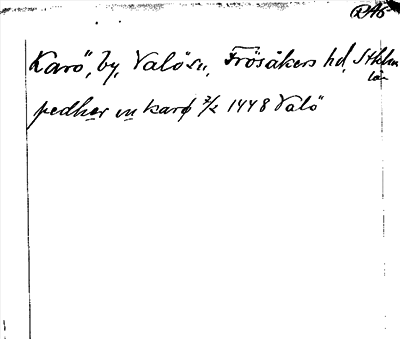 Karö, by, Valö sn, Frösåkers hd, Sthlm
län
pedher vn karø 3/2 1448 Valö